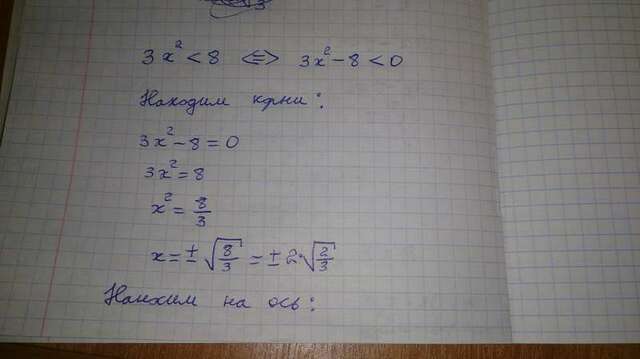 3x² < 8 <=> 3x² - 8 < 0
Находим крни:
3x² - 8 = 0
3x² = 8
x² = 8/3
x = ± √(8/3) = ± 2√(2/3)
на ось: